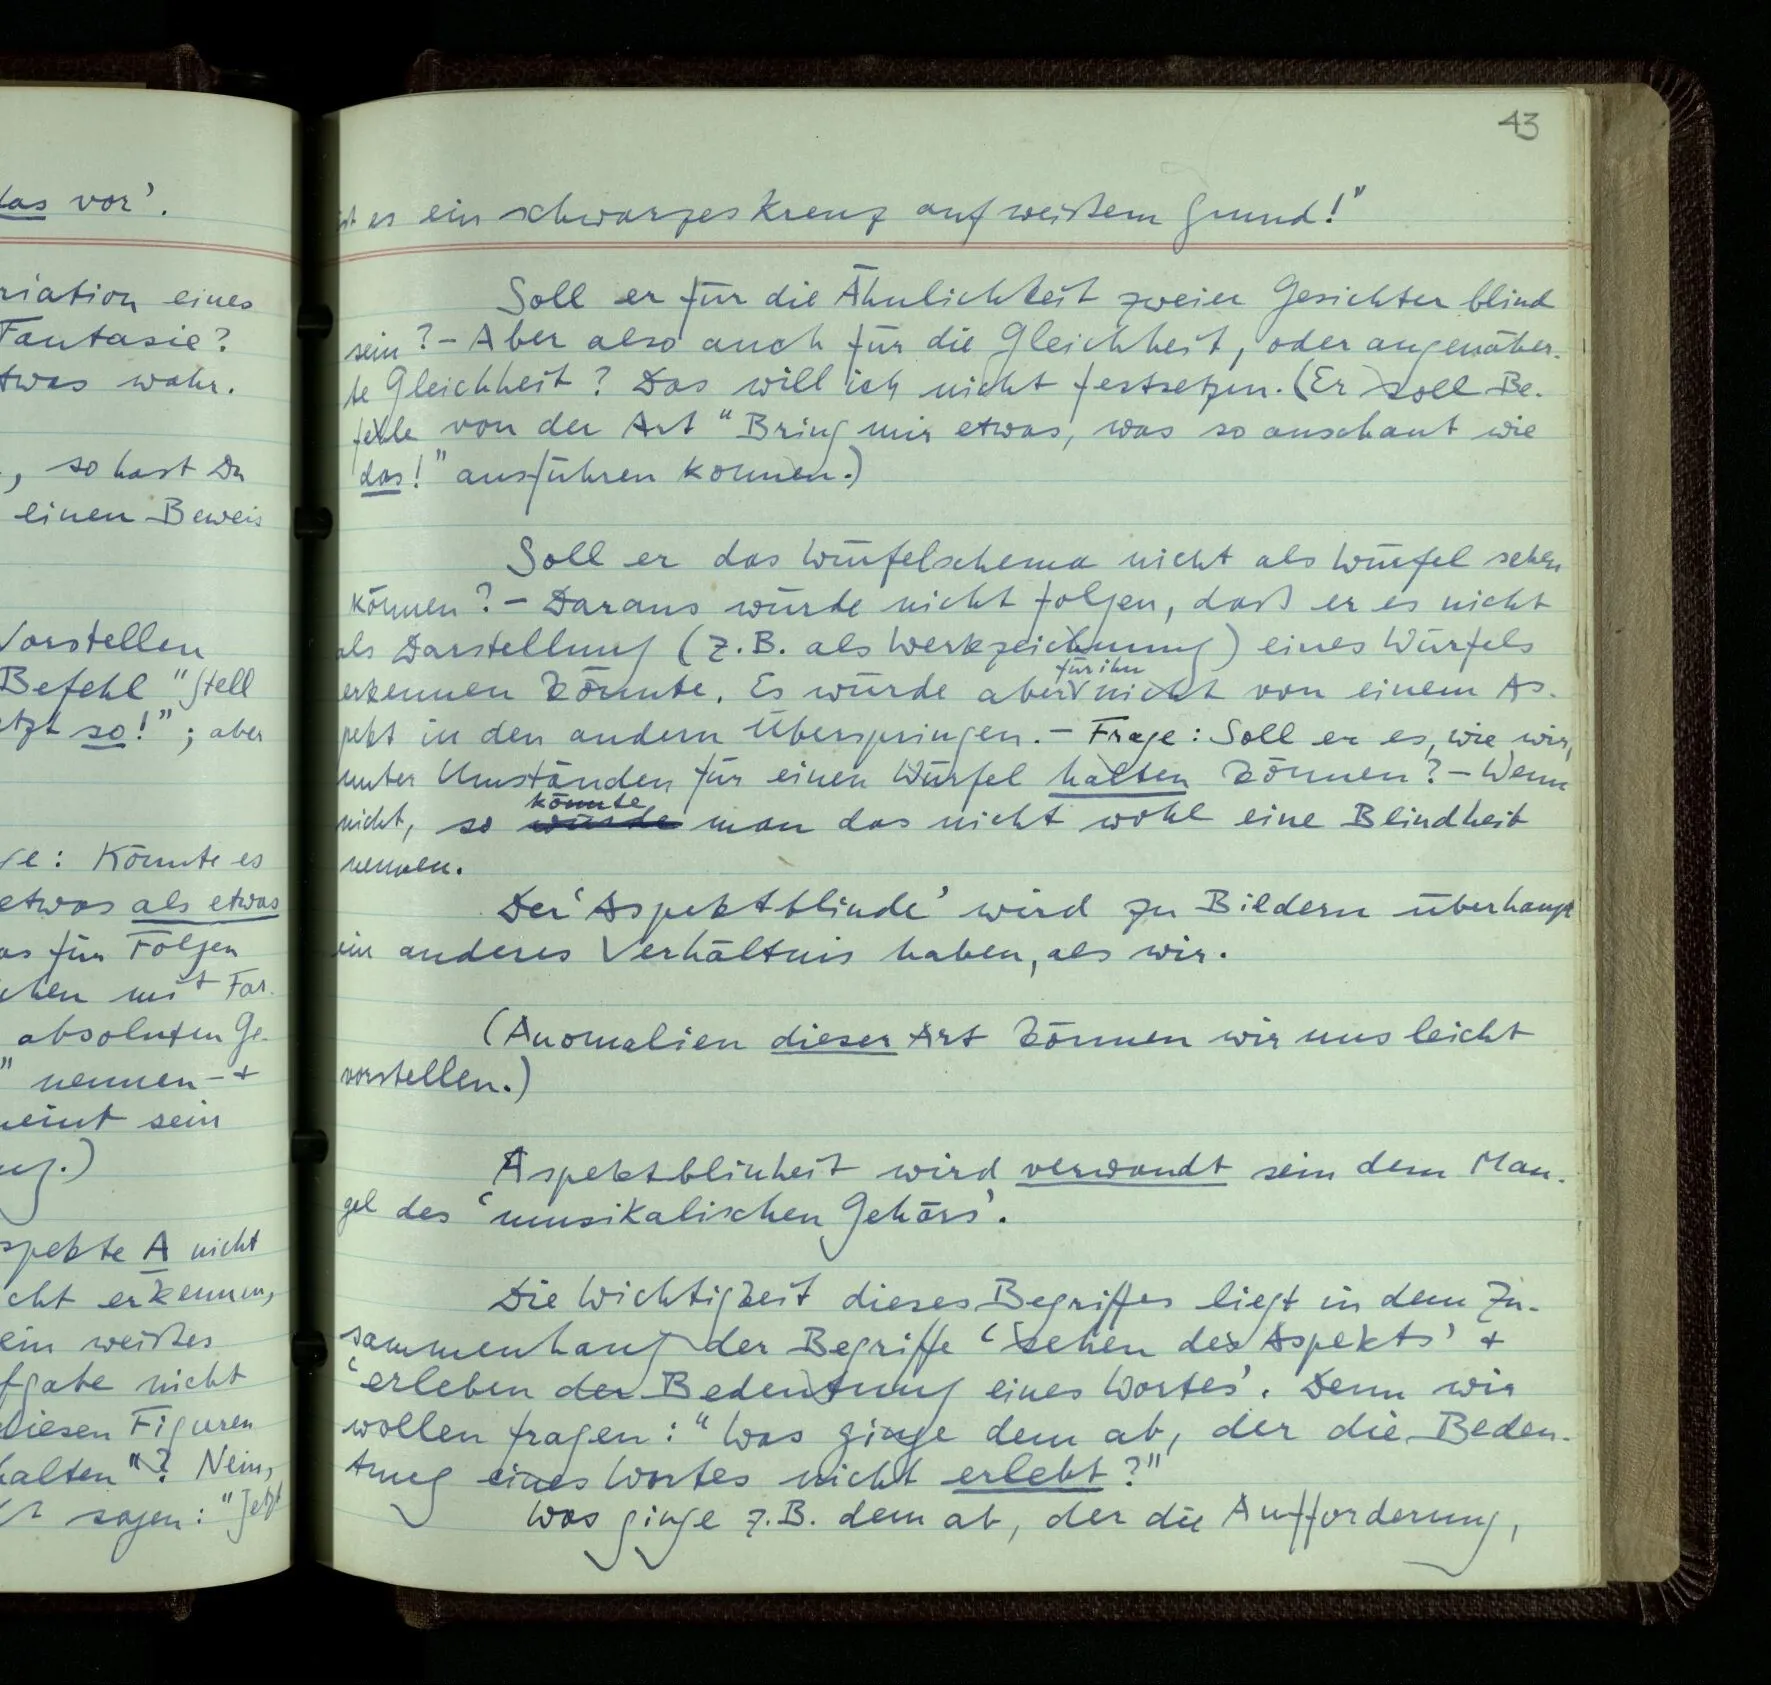 das vor’.
riation eines
Fantasie?
twas wahr.
, so hast Du
einen Beweis
Vorstellen
Befehl "Stell
etzt so!"; aber
ge: Könnte es
etwas als etwas
as für Folgen
ichen mit Far-
absoluten Ge-
" nennen – +
meint sein
ng.)
spekte A nicht
cht erkennen,
ein weißes
fgabe nicht
diesen Figuren
halten"? Nein,
sagen: "Jetzt
43
ist es ein schwarzes Kreuz auf weißem Grund!"
Soll er für die Ähnlichkeit zweier Gesichter blind
sein? – Aber also auch für die Gleichheit, oder angenäher-
te Gleichheit? Das will ich nicht festsetzen. (Er soll Be-
fehle von der Art "Bring mir etwas, was so anschaut wie
das!" ausführen können.)
Soll er das Würfelschema nicht als Würfel sehen
können? – Daraus würde nicht folgen, daß er es nicht
als Darstellung (z.B. als Werkzeichnung) eines Würfels
für ihn
erkennen könnte. Es würde aber nicht von einem As-
pekt in den andern überspringen. – Frage: Soll er es, wie wir,
unter Umständen für einen Würfel halten können? – Wenn
könnte
nicht, so würde man das nicht wohl eine Blindheit
nennen.
Der ‘Aspektblinde’ wird zu Bildern überhaupt
ein anderes Verhältnis haben, als wir.
(Anomalien dieser Art können wir uns leicht
vorstellen.)
Aspektblinheit wird verwandt sein dem Man-
gel des ‘musikalischen Gehörs’.
Die Wichtigkeit dieses Begriffes liegt in dem Zu-
sammenhang der Begriffe ‘sehen des Aspekts’ +
‘erleben der Bedeutung eines Wortes’. Denn wir
wollen fragen: "Was ginge dem ab, der die Bedeu-
tung eines Wortes nicht erlebt?"
Was ginge z.B. dem ab, der die Aufforderung,